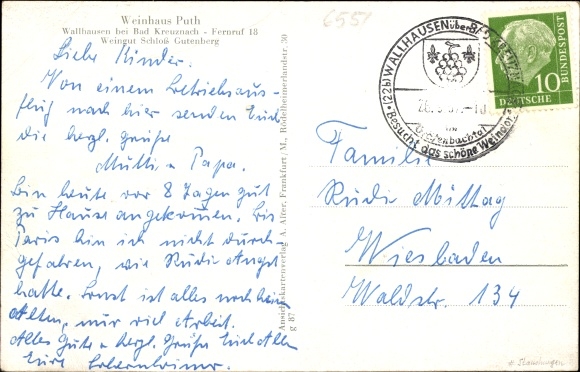 6551
Weinhaus Puth
Wallhausen bei Bad Kreuznach - Fernruf 18
Weingut Schloß Gutenberg
Liebe Kinder.
Von einem Betriebsaus-
flug nach hier senden Euch
die hergl. Grüße
Mutti u Papa.
Bin heute vor 8 Tagen gut
zu Hause angekommen. Bis
Paris bin ich nicht durch-
gefahren, wie Rudi Angst
hatte. Sonst ist alles noch beim
Alten, nur viel Arbeit.
Alles Gute u. hergl. Grüße Euch Allen
Eure
Ansichtskartenverlag A. Affer, Frankfurt/M., Rödelheimerlandstr. 30
g 87
(22b) WALLHAUSEN über BAD KREUZNACH
im
Gräfenbachtal
Besucht das schöne Weindorf
10
DEUTSCHE
BUNDESPOST
Familie
Rudi Mittag
Wiesbaden
Waldstr. 134